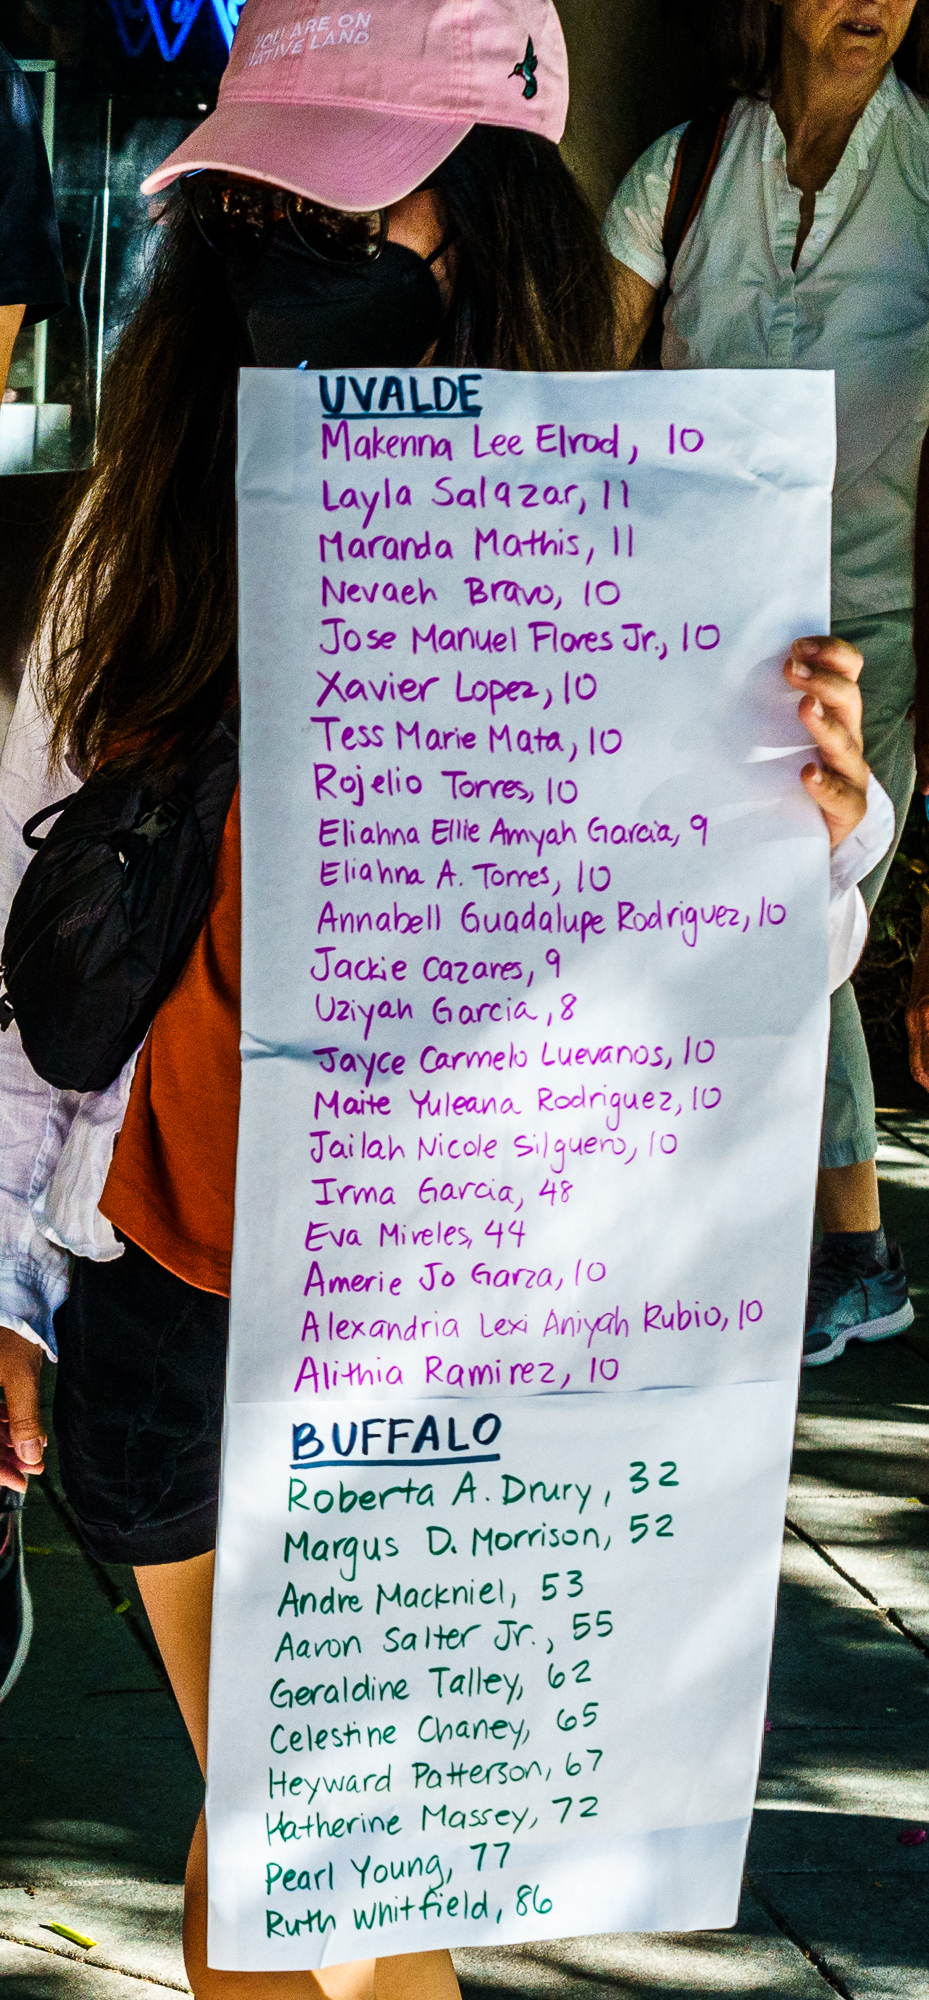 YOU ARE ON
NATIVE LAND
UVALDE
Makenna Lee Elrod, 10
Layla Salazar, 11
Maranda Mathis, 11
Nevaeh Bravo, 10
Jose Manuel Flores Jr., 10
Xavier Lopez, 10
Tess Marie Mata, 10
Rojelio Torres, 10
Eliahna Ellie Amyah Garcia, 9
Eliahna A. Torres, 10
Annabell Guadalupe Rodriguez, 10
Jackie Cazares, 9
Uziyah Garcia, 8
Jayce Carmelo Luevanos, 10
Maite Yuleana Rodriguez, 10
Jailah Nicole Silguero, 10
Irma Garcia, 48
Eva Mireles, 44
Amerie Jo Garza, 10
Alexandria Lexi Aniyah Rubio, 10
Alithia Ramirez, 10
BUFFALO
Roberta A. Drury, 32
Margus D. Morrison, 52
Andre Mackniel, 53
Aaron Salter Jr., 55
Geraldine Talley, 62
Celestine Chaney, 65
Heyward Patterson, 67
Katherine Massey, 72
Pearl Young, 77
Ruth Whitfield, 86